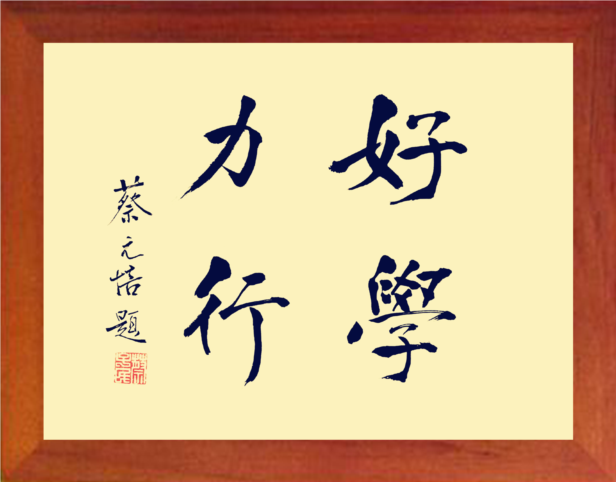 好學
力行
蔡元培題